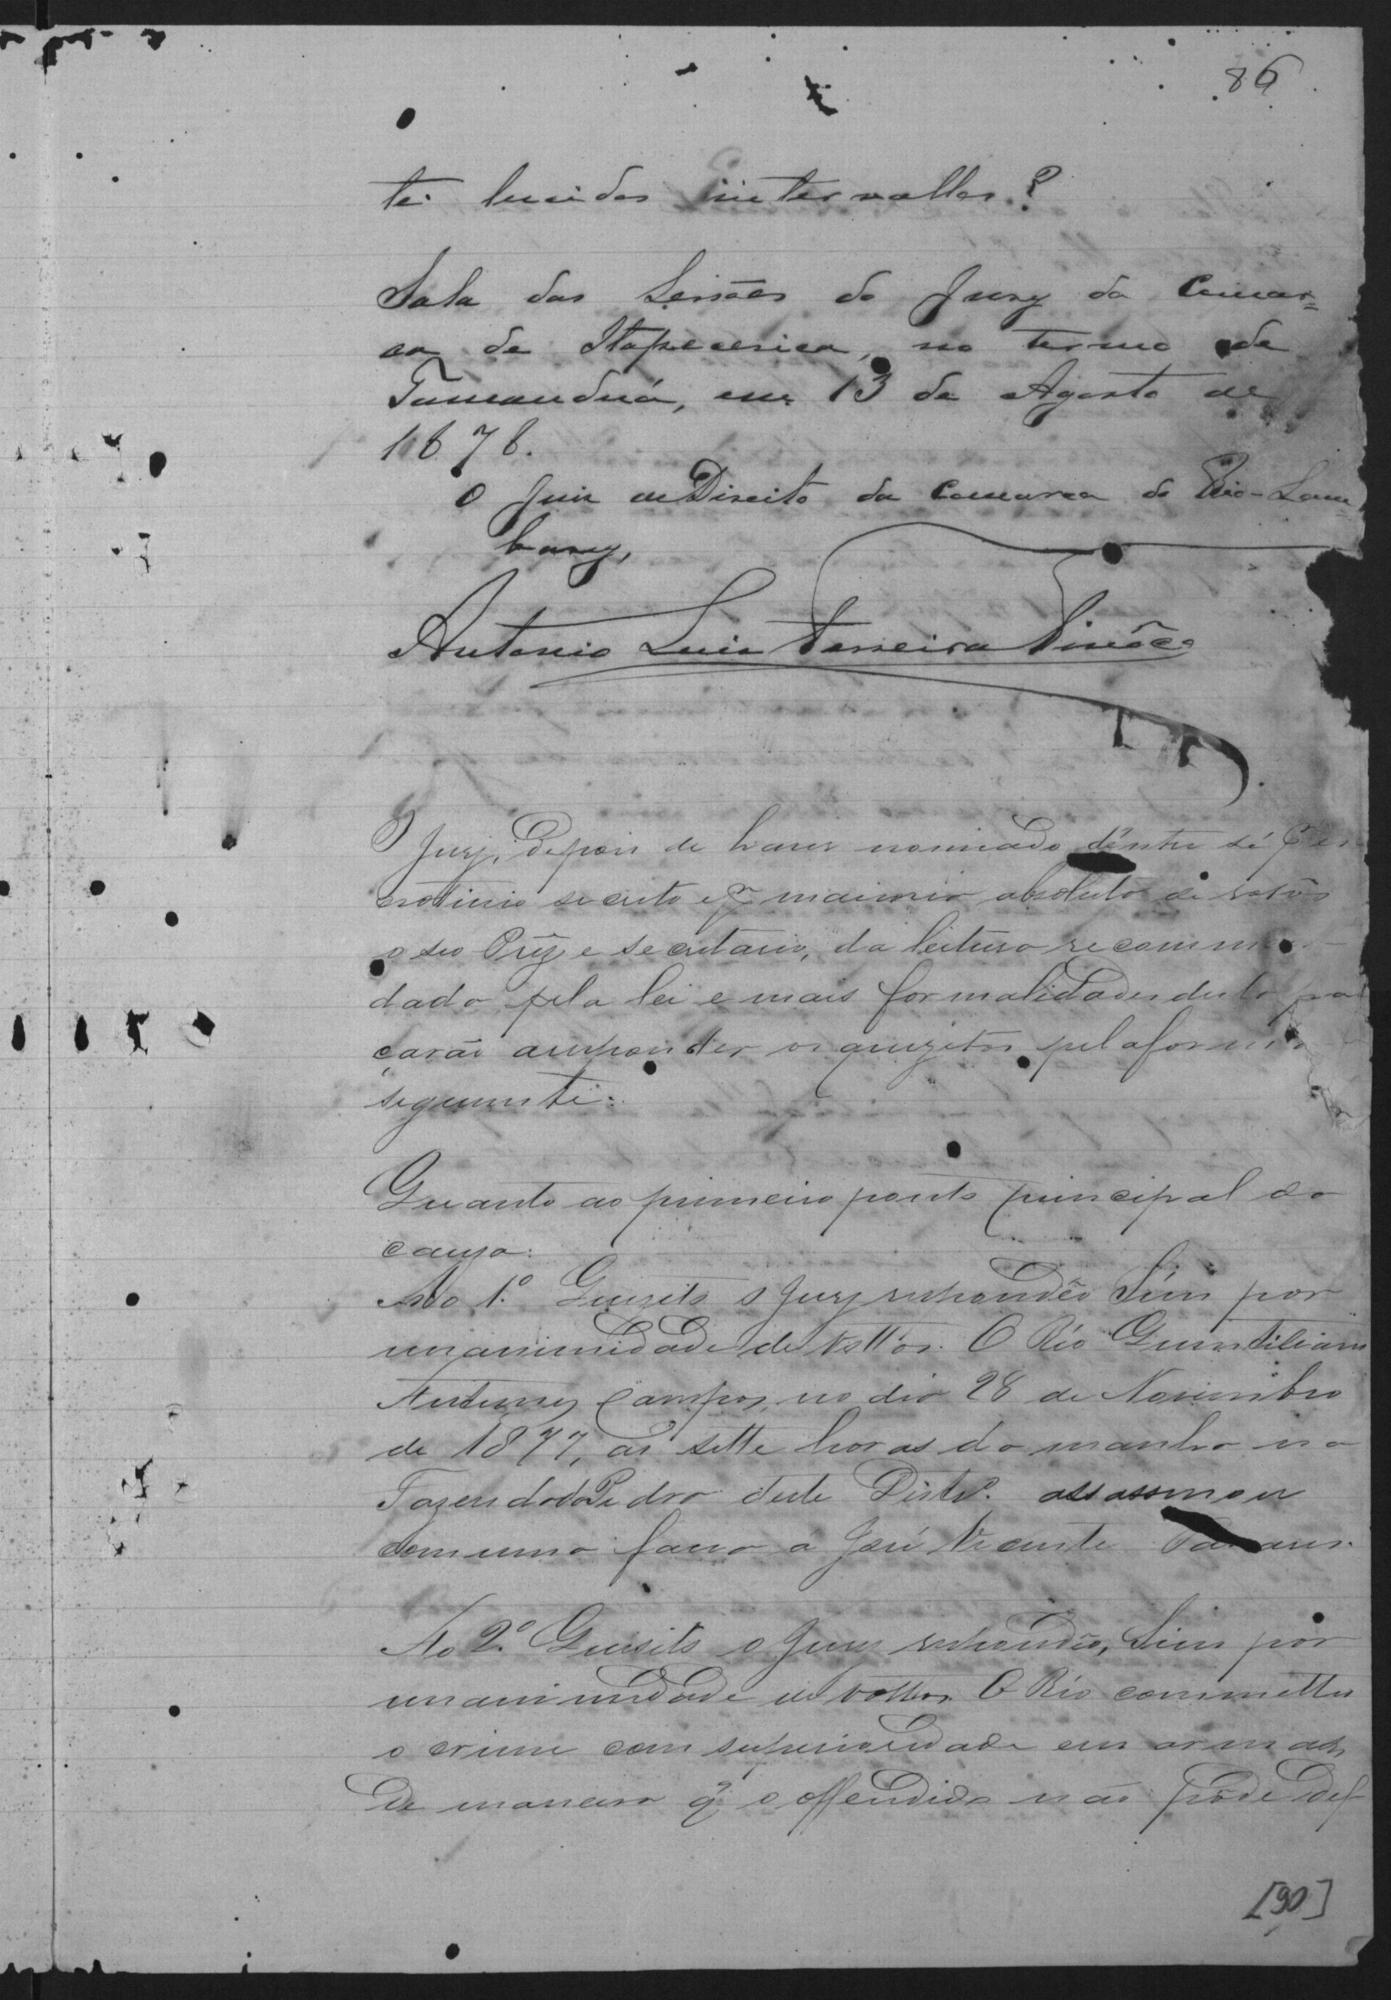 86
te lucidos intervallos?
Sala das Sessões do Jury da Comar=
ca de Itapecerica, no termo de
Tamanduá, em 13 de Agosto de
1878.
O Juiz de Direito da Comarca do Rio-Lam
bary,
Antonio Luiz Ferreira Tinôco
O Jury, depois de haver nomiado déntre si p es
crotinio secreto e p maioria absoluta de votos
o seo Prez e secretario, da leitura recommen
dada pela lei e mais formalidades desta, pa
çarão a responder os quezitos pela forma
seguinte:
Quanto ao primeiro ponto principal da
causa:
Ao 1.º Quesito o Jury respondêo Sim por
unanimidade de vottos. O Réo Quintiliano
Antunes Campos, no dia 28 de Novembro
de 1877, as sette horas da manha na
Fazenda do Pedro deste Distr.º assassinou
com uma faca a José Vicente Tavares.
Ao 2.º Quesito o Jury respondêo, Sim por
unanimidade de vottos. O Réo commetteu
o crime com superioridade em armas,
de maneira q̃ o offendido não pôde def
[90]